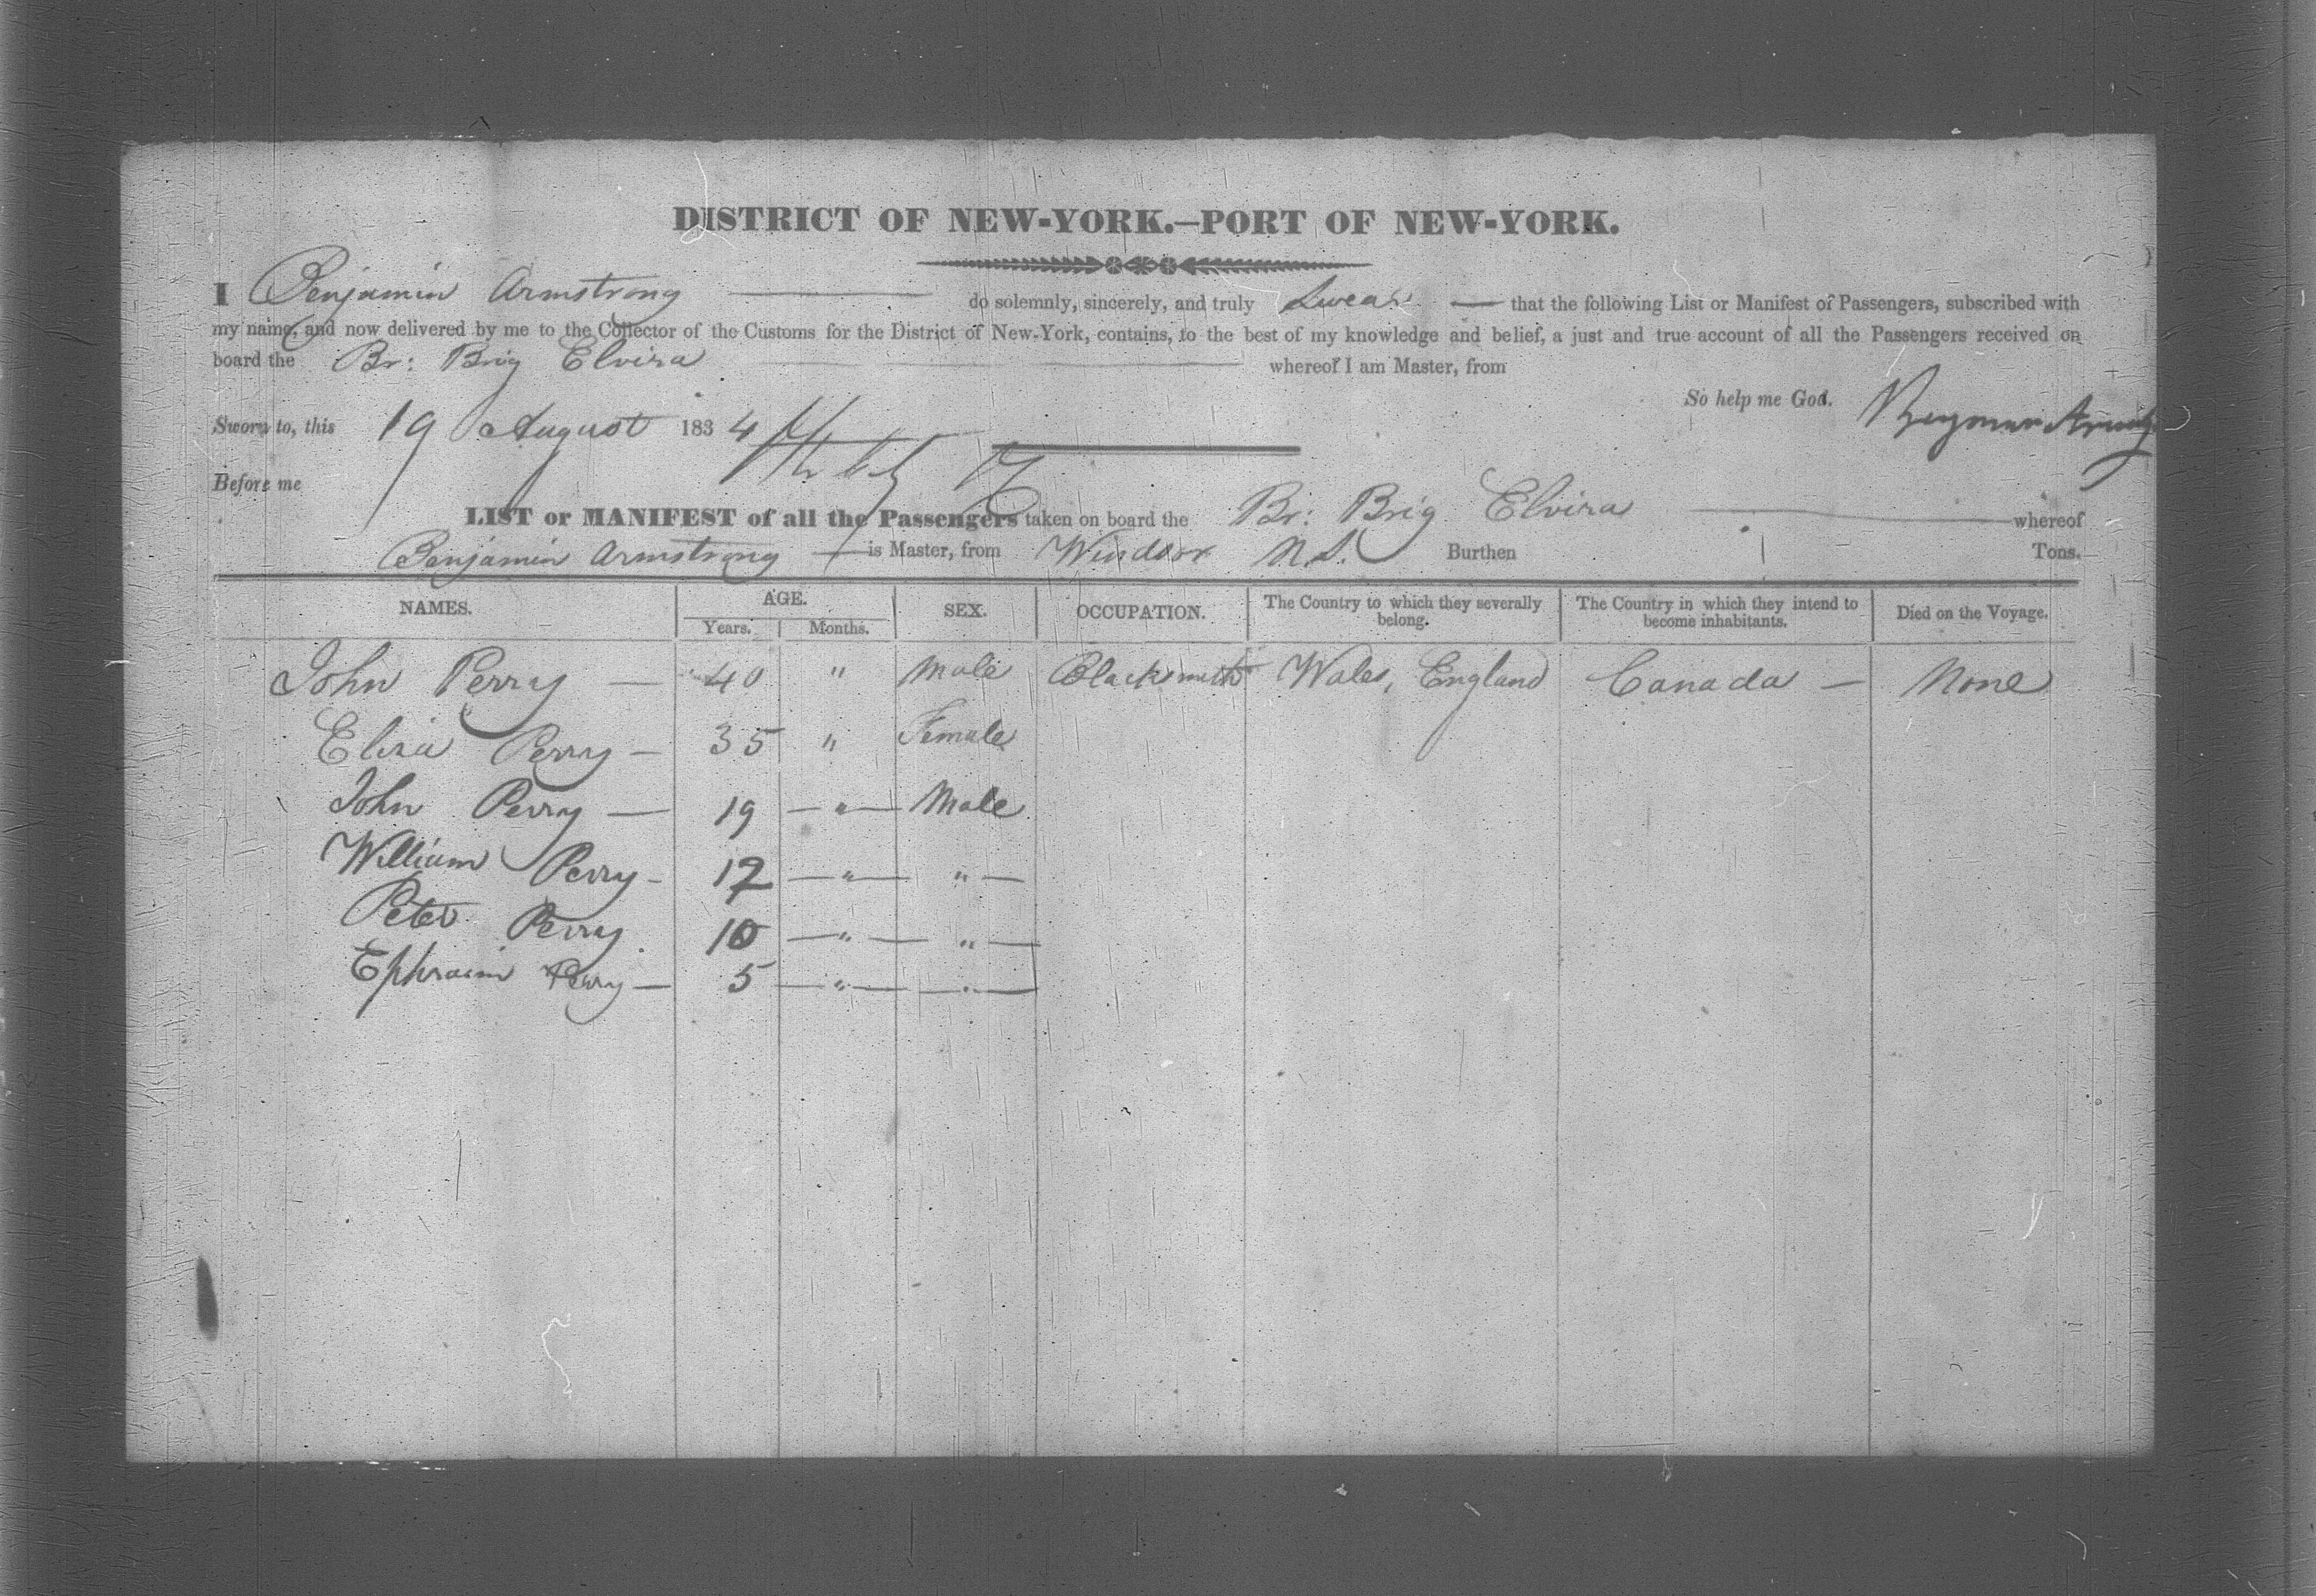 DISTRICT OF NEW-YORK.—PORT OF NEW-YORK.
I Benjamin Armstrong — do solemnly, sincerely, and truly Swear — that the following List or Manifest of Passengers, subscribed with
my name, and now delivered by me to the Collector of the Customs for the District of New-York, contains, to the best of my knowledge and belief, a just and true account of all the Passengers received on
board the Br: Brig Elvira — whereof I am Master, from
So help me God.
Sworn to, this 19 August 1834
Before me
LIST or MANIFEST of all the Passengers taken on board the Br: Brig Elvira — whereof
Benjamin Armstrong — is Master, from Windsor N.S. Burthen Tons.
NAMES. AGE. SEX. OCCUPATION. The Country to which they severally belong. The Country in which they intend to become inhabitants. Died on the Voyage.
Years. Months.
John Perry — 40 " Male Blacksmith Wales, England Canada — None
Eliza Perry — 35 " Female
John Perry — 19 — " — Male
William Perry - 12 — " — " —
Peter Perry 10 — " — " —
Ephraim Perry — 5 — " — " —